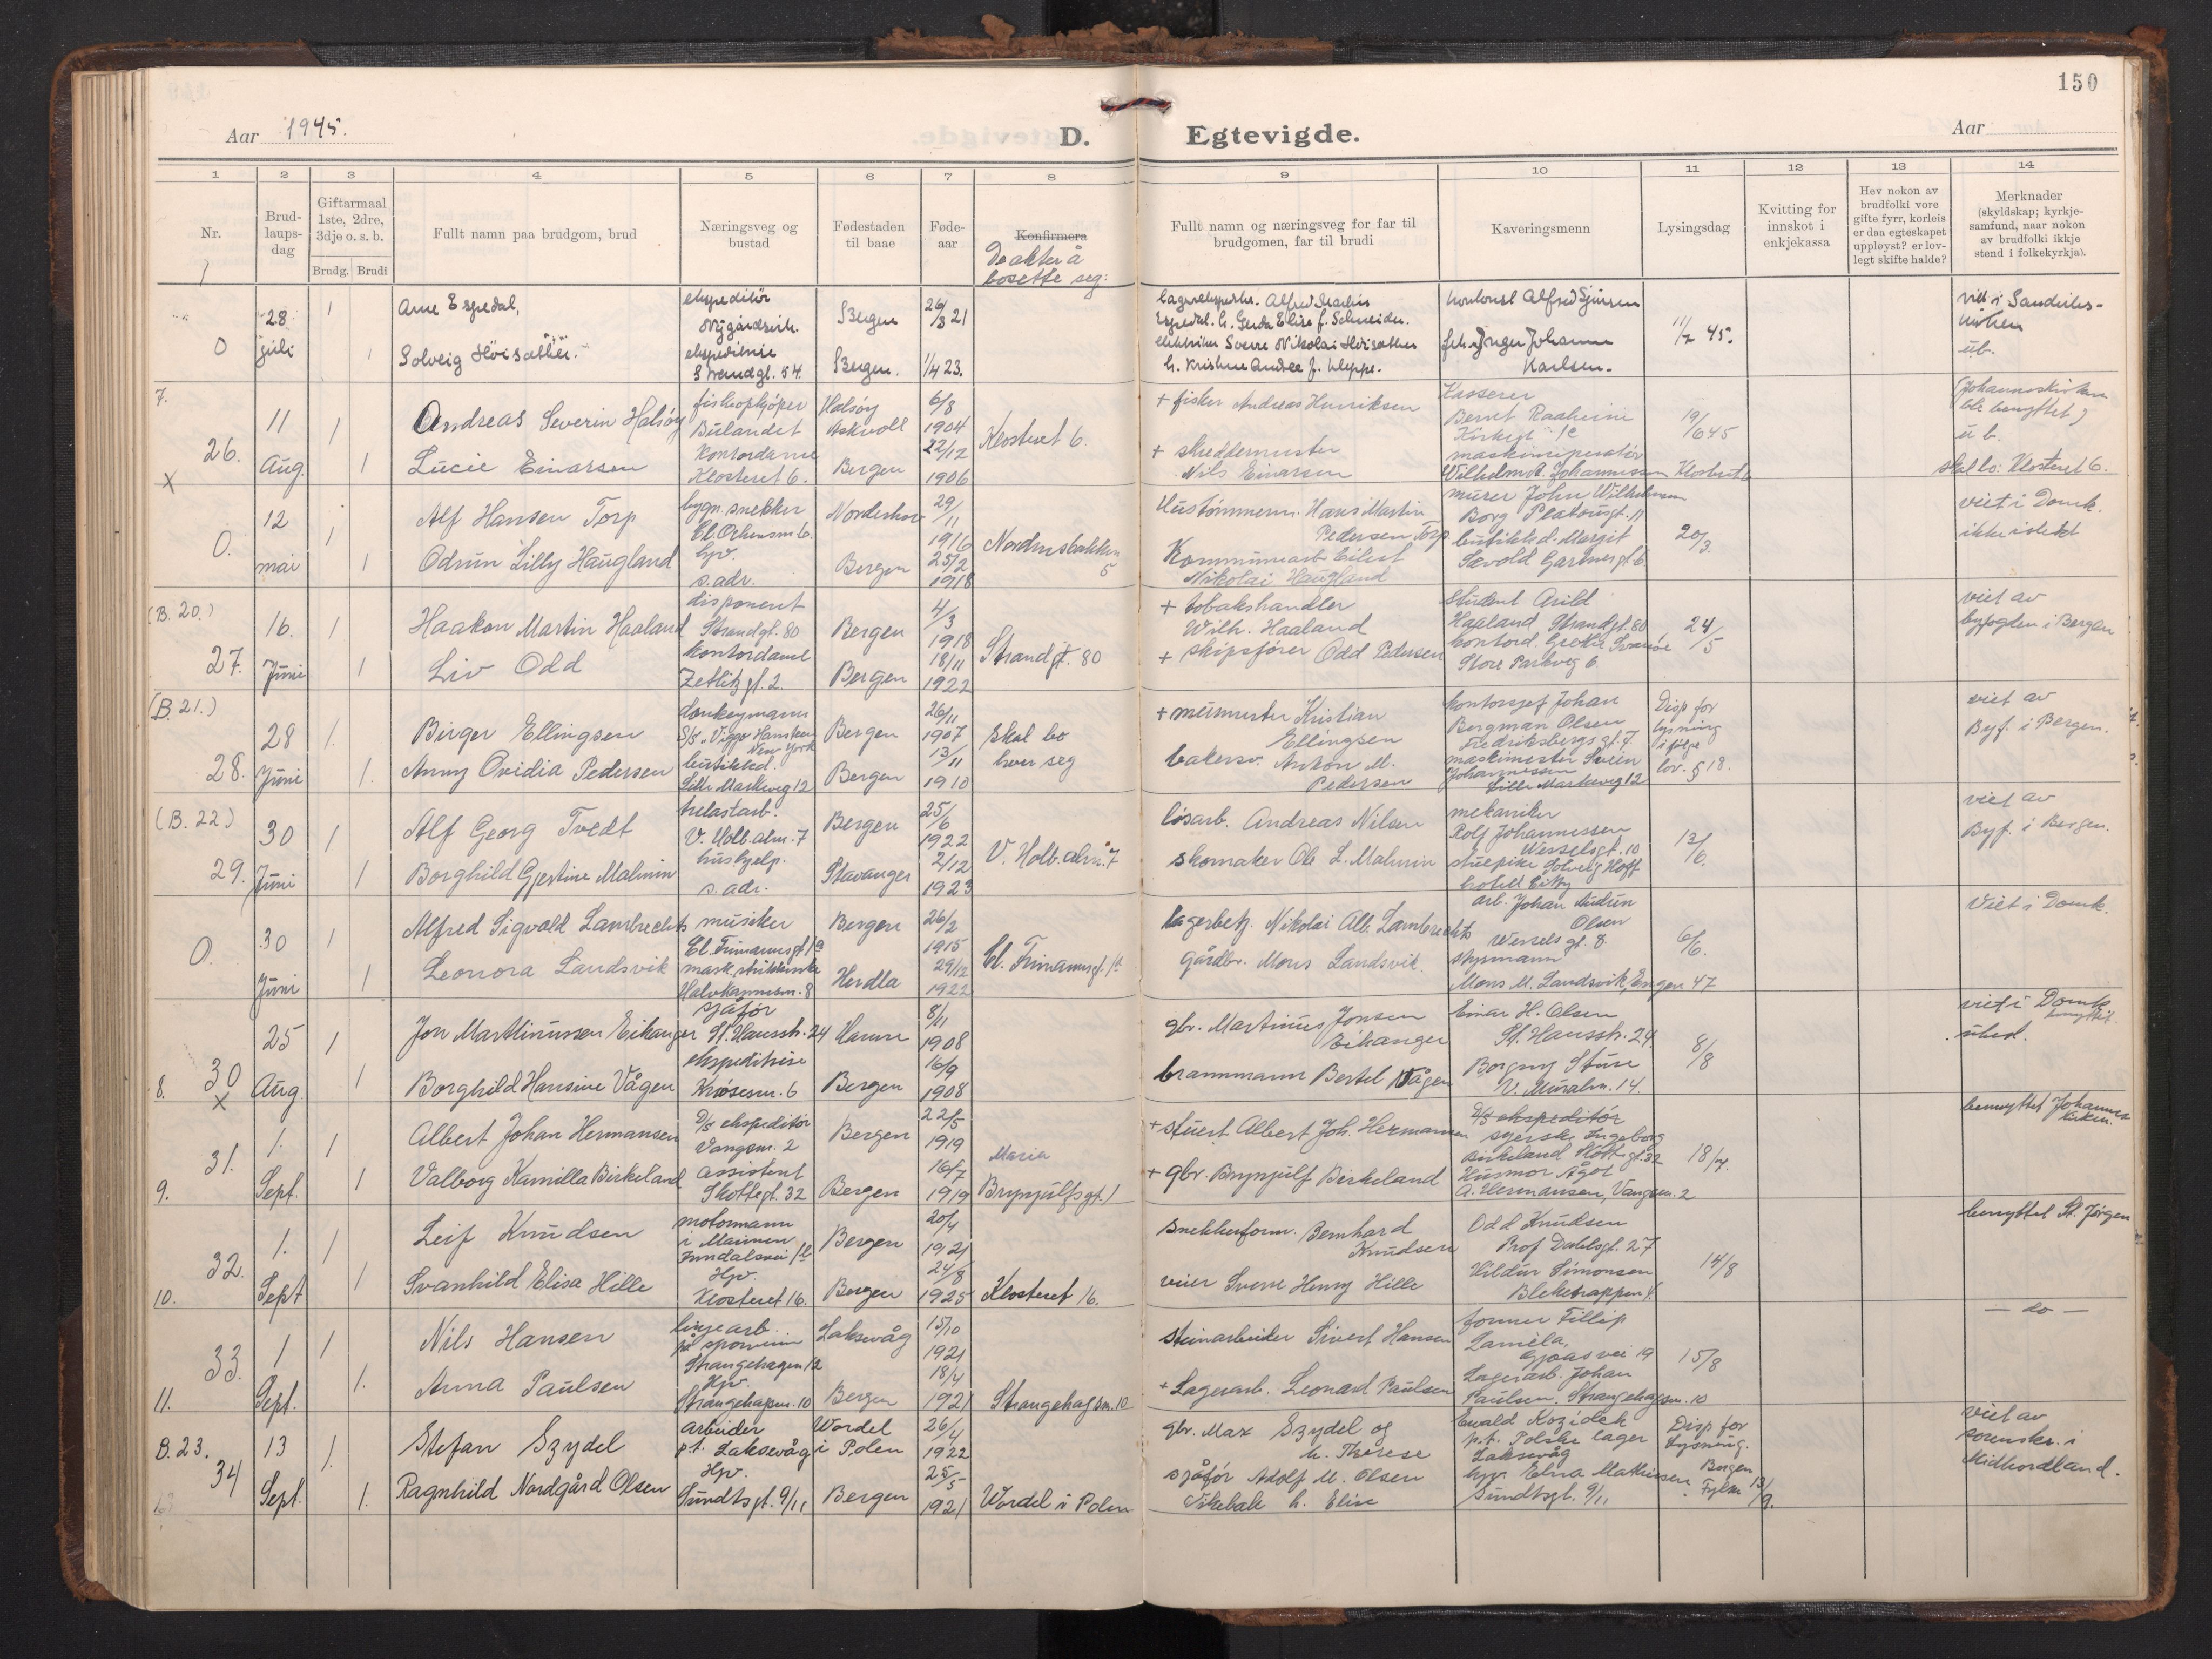 150
Aar 1945.
D.
Egtevigde.
Aar
1 2 3 4 5 6 7 8 9 10 11 12 13 14
Nr.
Brud-
laups-
dag
Giftarmaal
1ste, 2dre,
3dje o. s. b.
Brudg. Brudi
Fullt namn paa brudgom, brud
Næringsveg og
bustad
Fødestaden
til baae
Føde-
aar
Konfirmera
De akter å
bosette seg:
Fullt namn og næringsveg for far til
brudgomen, far til brudi
Kaveringsmenn
Lysingsdag
Kvitting for
innskot i
enkjekassa
Hev nokon av
brudfolki vore
gifte fyrr, korleis
er daa egteskapet
uppløyst? er lov-
legt skifte halde?
Merknader
(skyldskap; kyrkje-
samfund, naar nokon
av brudfolki ikkje
stend i folkekyrkja).
0
28
juli
1
1
Arne Espedal,
Solveig Høisæther.
ekspeditør
Nygårdsvik.
ekspeditrise
Strandgt. 54.
Bergen
Bergen.
26/3 21
1/4 23.
Espedal. h. Gerda Elise f. Schneider.
Sverre Nikolai Høisæther
h. Kristine Andrea f. Kleppe.
Alfred Sjursen
Inger Johanne
Karlsen.
11/7 45.
viet i Sandviks-
kirken
u.b.
7.
26.
x
11
Aug.
1
1
Andreas Severin Halsøy
Lucie Einarsen
fiskeopkjøper
Bulandet
Kontordame
Klosteret 6.
Halsøy
Askvoll
Bergen
6/8
1904
22/12
1906
Klosteret 6.
+ fisker Andreas Henriksen
+ skreddermester
Nils Einarsen
Kasserer
Bernt Raaheim
maskinreparatør
Wilhelm A. Johannessen Klosteret 6
19/6 45
(Johanneskirken
ble benyttet)
u b.
skal bo: Klosteret 6.
0.
12
mai
1
1
Alf Hansen Torp
Odrun Lilly Haugland
bygn. snekker
hjv.
s. adr.
Norderhov
Bergen
29/11
1916
25/2
1918
Nordnesbakken
5
Hustømmerm. Hans Martin
Pedersen Torp
Kommunearb. Eilert
Nikolai Haugland
murer John Wilhelmsen
Borg Platousgt. 11
butikkd. Margit
Sævold Gartnergt 6.
20/3.
viet i Domk.
ikke i slekt
(B. 20.)
27.
16.
Juni
1
1
Haakon Martin Haaland
Liv Odd
disponent
Strandgt. 80
kontordame
Zetlitzgt. 2.
Bergen
Bergen
4/3
1918
18/11
1922
Strandgt. 80
+ tobakshandler
Wilh. Haaland
+ skipsfører Odd Pedersen
Student Arild
Haaland Strandgt. 80
kontord. Grethe Svanøe
Store Parkveg 6.
24/5
viet av
byfogden i Bergen
(B. 21.)
28.
28
Juni
1.
1.
Birger Ellingsen
Anny Ovidia Pedersen
donkeymann
S/S „Viggo Hansteen
New York
butikkd.
Lille Markeveg 12
Bergen
Bergen
26/11
1907
13/11
1910
skal bo
hver seg
+ murmester Kristian
Ellingsen
bakersv. Anton M.
Pedersen
kontorsjef Johan
Bergman Olsen
Fredriksbergs gt. 7.
maskinmester Svein
Johannessen
Lille Markeveg 12
Disp for
lysning
i følge
lov. § 18.
viet av
Byf. i Bergen.
(B. 22.)
29.
30
Juni
1
1
Alf Georg Tvedt
Borghild Gjertine Malmin
trelastarb.
V. Holb.alm. 7
hushjelp.
s. adr.
Bergen
Stavanger
25/6
1922
2/12
1923
V. Holb. alm. 7
løsarb. Andreas Nilsen
skomaker Ole L. Malmin
mekaniker
Rolf Johannessen
Wesselsgt. 10
stuepike Solveig Hoff
hotell City
13/6.
viet av
Byf. i Bergen.
0.
30
Juni
1
1
Alfred Sigvald Lambrechts
Leonora Landsvik
musiker
Cl. Frimannsgt 1a
Halvkannesm. 8
Bergen
Herdla
26/2
1915
29/12
1922
Cl. Frimannsgt. 1a
lagerbetj. Nikolai Alb. Lambrechts
gårdbr. Mons Landsvik.
arb. Johan Audun
Olsen
Wessels gt. 8.
styrmann
Mons M. Landsvik, Engen 47
6/6.
Viet i Domk.
8.
30
x
25
Aug.
1
1
Jon Martinussen Eikanger
Borghild Hansine Vågen
sjåfør
St. Hansstr. 24
ekspeditrise
Krøsesm. 6
Hamre
Bergen
8/11
1908
16/9
1908
gbr. Martinus Jonsen
Eikanger
brannmann Bertel Vågen
Einar H. Olsen
St. Hansstr. 24.
Borgny Sture
V. Muralm. 14.
8/8
viet i Domk.
benyttet.
ubed.
9.
31.
1.
Sept.
1
1
Albert Johan Hermansen
Valborg Kamilla Birkeland
D/S ekspeditør
Vangsm. 2
assistent
Skottegt. 32
Bergen
Bergen
22/5
1919
16/7
1919
Maria
Brynjulfsgt. 1
+ stuert Albert Joh. Hermansen
+ gbr. Brynjulf Birkeland
D/S ekspeditør
syerske Ingeborg
Birkeland Skottgt. 32
Husmor Ågot
A. Hermansen, Vangsm. 2
18/7.
benyttet Johannes
kirken.
10.
32.
1.
Sept
1
1
Leif Knudsen
Svanhild Elisa Hille
motormann
i Marinen
Hjv.
Klosteret 16.
Bergen
Bergen
20/4
1921
24/8
1925
Klosteret 16.
Snekkerform. Bernhard
Knudsen
veier Sverre Henry Hille
Odd Knudsen
Prof Dahlsgt. 27
Vildur Simonsen
Bleketrappen 4.
14/8
benyttet St. Jørgen
11.
33.
1
Sept.
1
1.
Nils Hansen
Anna Paulsen
linjearb.
på sporveien
Strangehagen 12
Hjv.
Strangehagen. 10
Laksevåg
Bergen
15/10
1921
18/4
1921
Strangehagen. 10
steinarbeider Sivert Hansen
+ Lagerarb. Leonard Paulsen
former Fillip
Lamela,
Gjøas vei 19
Lagerarb. Johan
Paulsen. Strangehagen. 10
15/8
— do —
B. 23.
34
13
Sept.
1.
1.
Stefan Szydel
Ragnhild Nordgård Olsen
arbeider
p.t. Laksevåg
Hjv.
Sundtsgt. 9/11
Wordel
i Polen
Bergen
26/4
1922
25/5
1921
Wordel i Polen
gbr. Max Szydel og
h. Therese
sjåfør Adolf M. Olsen
Vikebak h. Elise
Ewald Kozidek
p.t. Polske lager
Laksevåg
hjv. Elna Mathiesen
Sundtsgt. 9/11
Disp for
Lysning.
Bergen
Fylke 13/9.
viet av
sorenskr. i
Midhordland.